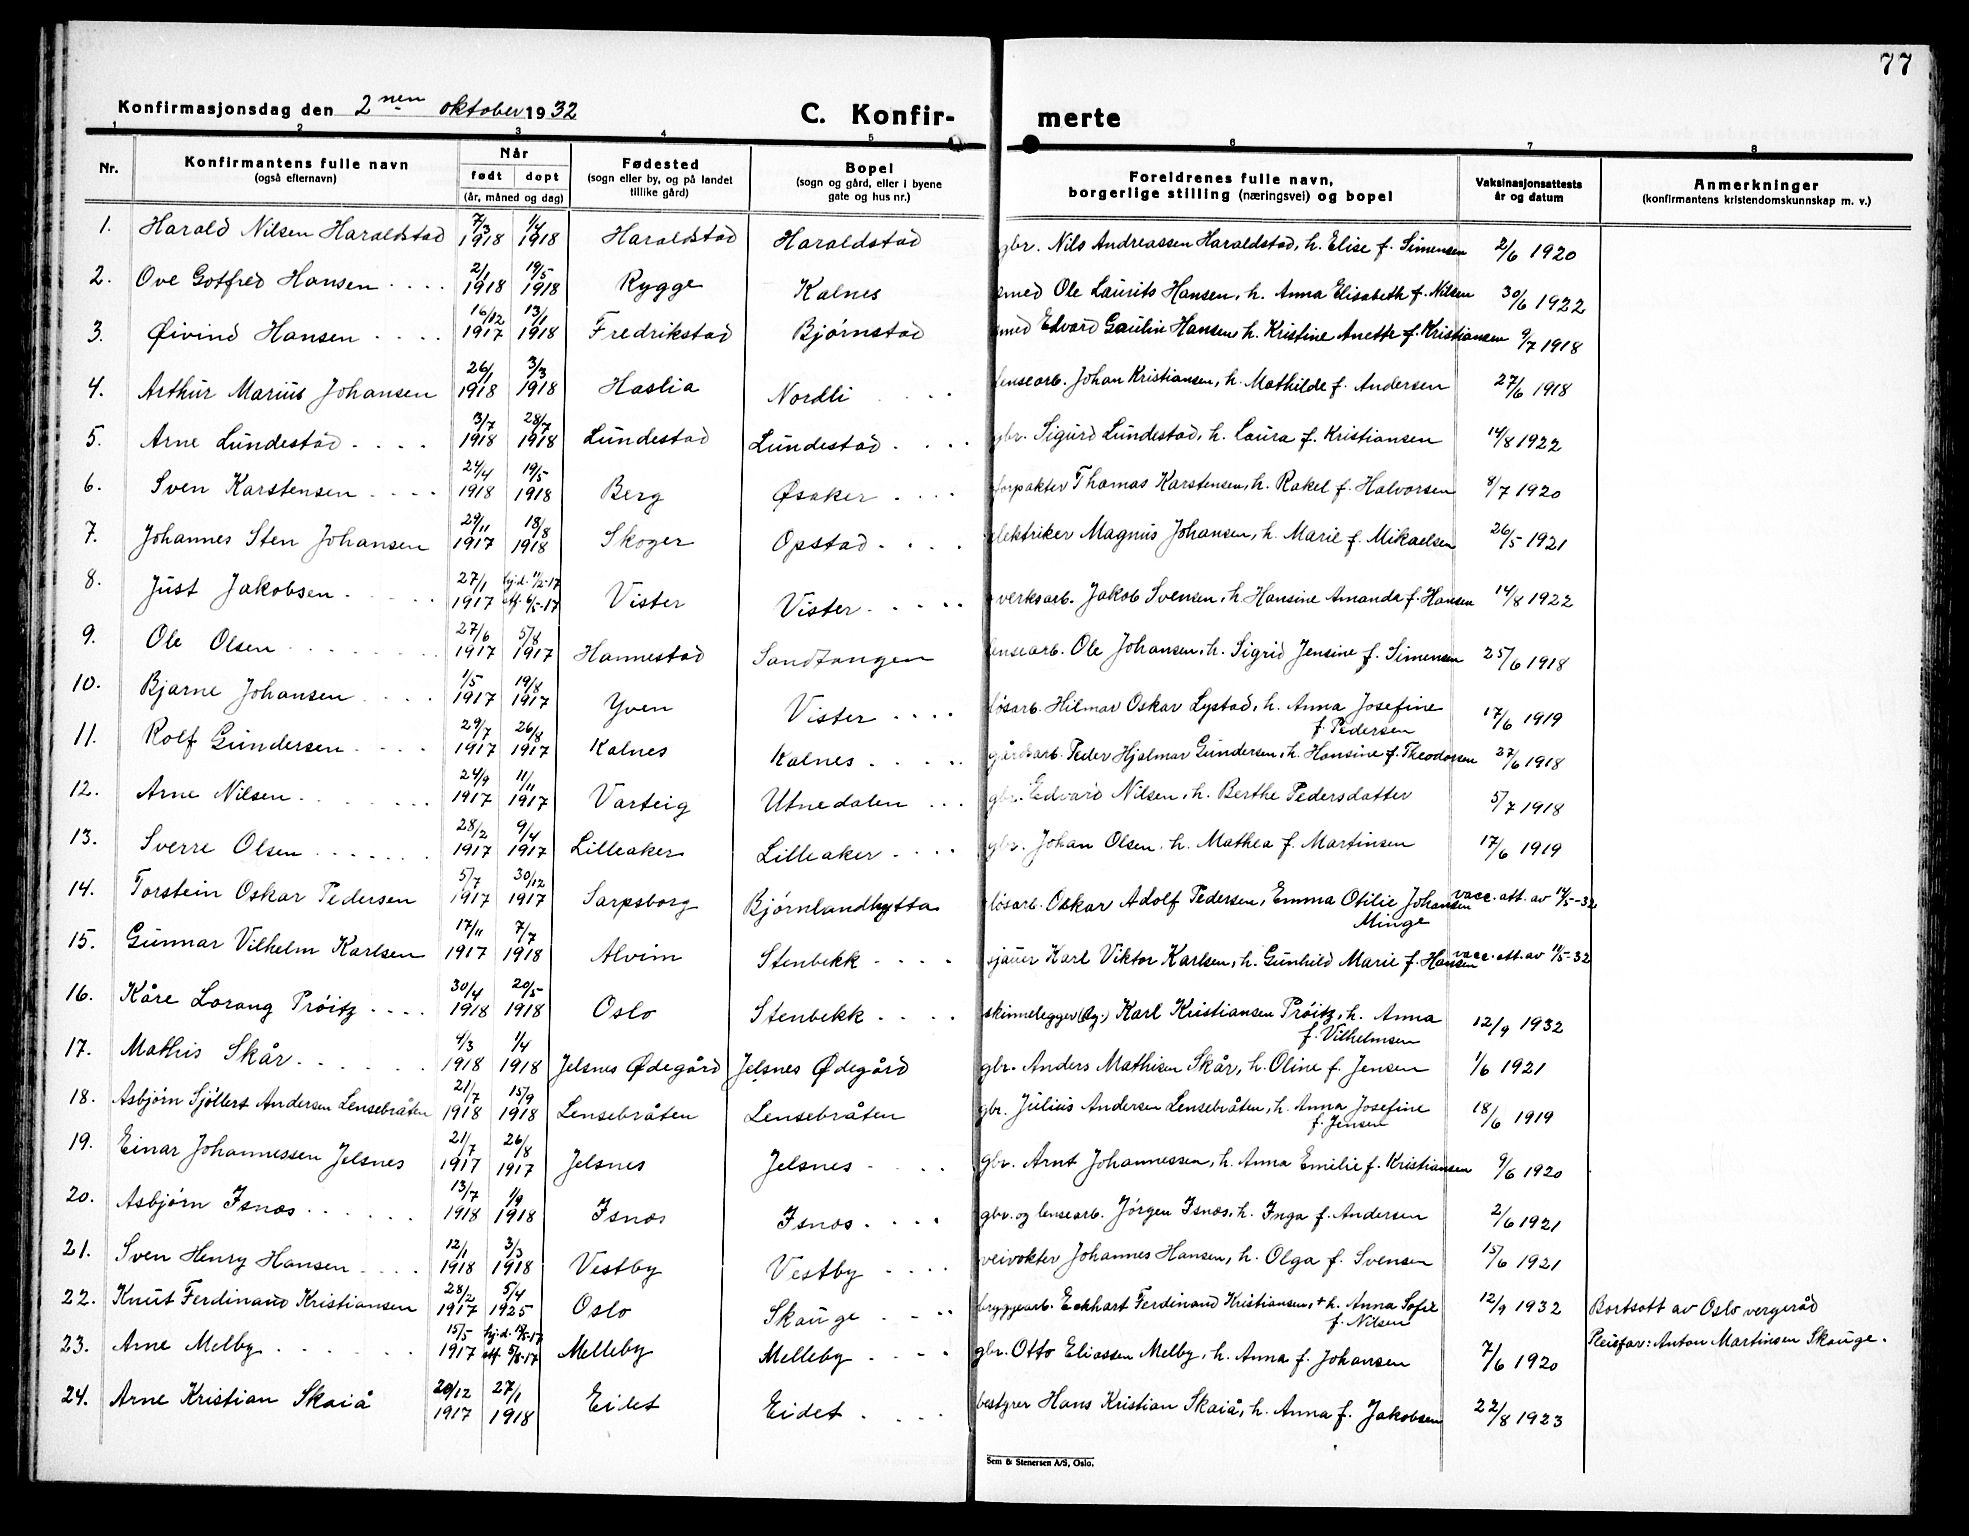 77
Konfirmasjonsdag den 2nen oktober 1932
C. Konfir- merte
1 2 3 4 5 6 7 8
Nr. Konfirmantens fulle navn (også efternavn) Når født døpt (år, måned og dag) Fødested (sogn eller by, og på landet tillike gård) Bopel (sogn og gård, eller i byene gate og hus nr.) Foreldrenes fulle navn, borgerlige stilling (næringsvei) og bopel Vaksinasjonsattests år og datum Anmerkninger (konfirmantens kristendomskunnskap m. v.)
1. Harald Nilsen Haraldstad 7/3 1918 1/4 1918 Haraldstad Haraldstad gbr. Nils Andreassen Haraldstad, h. Elise f. Simensen 2/6 1920
2. Ove Gotfred Hansen 2/1 1918 19/5 1918 Rygge Kalnes smed Ole Laurits Hansen, h. Anna Elisabeth f. Nilsen 30/6 1922
3. Øivind Hansen 16/12 1917 13/1 1918 Fredrikstad Bjørnstad smed Edvard Gaulin Hansen, h. Kristine Anette f. Kristiansen 9/7 1918
4. Arthur Marius Johansen 26/1 1918 3/3 1918 Haslia Nordli lensearb. Johan Kristiansen, h. Mathilde f. Andersen 27/6 1918
5. Arne Lundestad 13/7 1918 28/7 1918 Lundestad Lundestad gbr. Sigurd Lundestad, h. Laura f. Kristiansen 14/8 1922
6. Sven Karstensen 24/4 1918 19/5 1918 Berg Øsaker forpakter Thomas Karstensen, h. Rakel f. Halvorsen 8/7 1920
7. Johannes Sten Johansen 29/11 1917 18/8 1918 Skoger Opstad elektriker Magnus Johansen, h. Marie f. Mikaelsen 26/5 1921
8. Just Jakobsen 27/1 1917 hj.d. 11/2-17 stf. 6/5-17 Vister Vister verksarb. Jakob Svensen, h. Hansine Amanda f. Hansen 14/8 1922
9. Ole Olsen 27/6 1917 5/8 1917 Hannestad Sandtangen lensearb. Ole Johansen, h. Sigrid Jensine f. Simensen 25/6 1918
10. Bjarne Johansen 1/5 1917 19/8 1917 Yven Vister løsarb. Hilmar Oskar Lystad, h. Anna Josefine f. Pedersen 17/6 1919
11. Rolf Gundersen 29/7 1917 26/8 1917 Kalnes Kalnes gårdsarb. Peder Hjalmar Gundersen, h. Hansine f. Theodorsen 27/6 1918
12. Arne Nilsen 24/9 1917 11/11 1917 Varteig Utnedalen gbr. Edvard Nilsen, h. Berthe Pedersdatter 5/7 1918
13. Sverre Olsen 28/2 1917 9/4 1917 Lilleaker Lilleaker gbr. Johan Olsen, h. Mathea f. Martinsen 17/6 1919
14. Torstein Oskar Pedersen 5/7 1917 30/12 1917 Sarpsborg Bjørnlandhytta løsarb. Oskar Adolf Pedersen, Emma Otilie Johansen Minge vacc. att. av 14/5-32
15. Gunnar Vilhelm Karlsen 17/11 1917 7/7 1918 Alvim Stenbekk sjauer Karl Viktor Karlsen, h. Gunhild Marie f. Hansen vacc. att. av 14/5-32
16. Kåre Lorang Prøitz 30/4 1918 20/5 1918 Oslo Stenbekk skinnelegger (sy.) Karl Kristiansen Prøitz, h. Anna f. Vilhelmsen 12/9 1932
17. Mathis Skår 6/3 1918 1/4 1918 Jelsnes Ødegård Jelsnes Ødegård gbr. Anders Mathisen Skår, h. Oline f. Jensen 1/6 1921
18. Asbjørn Sjøllert Andersen Lensebråten 21/7 1918 15/9 1918 Lensebråten Lensebråten gbr. Julius Andersen Lensebråten, h. Anna Josefine f. Jensen 18/6 1919
19. Einar Johannessen Jelsnes 21/7 1917 26/8 1917 Jelsnes Jelsnes gbr. Arnt Johannessen, h. Anna Emilie f. Kristiansen 9/6 1920
20. Asbjørn Isnæs 13/7 1918 1/9 1918 Isnæs Isnæs gbr. og lensearb. Jørgen Isnæs, h. Inga f. Andersen 2/6 1921
21. Sven Henry Hansen 12/1 1918 3/3 1918 Vestby Vestby veivokter Johannes Hansen, h. Olga f. Svensen 15/6 1921
22. Knut Ferdinand Kristiansen 28/2 1917 5/4 1925 Oslo Skauge bryggearb. Eckhart Ferdinand Kristiansen, + h. Anna Sofie f. Nilsen 12/9 1932 Bortsatt av Oslo vergeråd
Pleiefar: Anton Martinsen Skauge.
23. Arne Melby 15/5 1917 hj.d. stf. 5/8-17 Melleby Melleby gbr. Otto Eliassen Melby, h. Anna f. Johansen 7/6 1920
24. Arne Kristian Skaiå 20/12 1917 27/1 1918 Eidet Eidet bestyrer Hans Kristian Skaiå, h. Anna f. Jakobsen 22/8 1923
Sem & Stenersen A/S, Oslo.